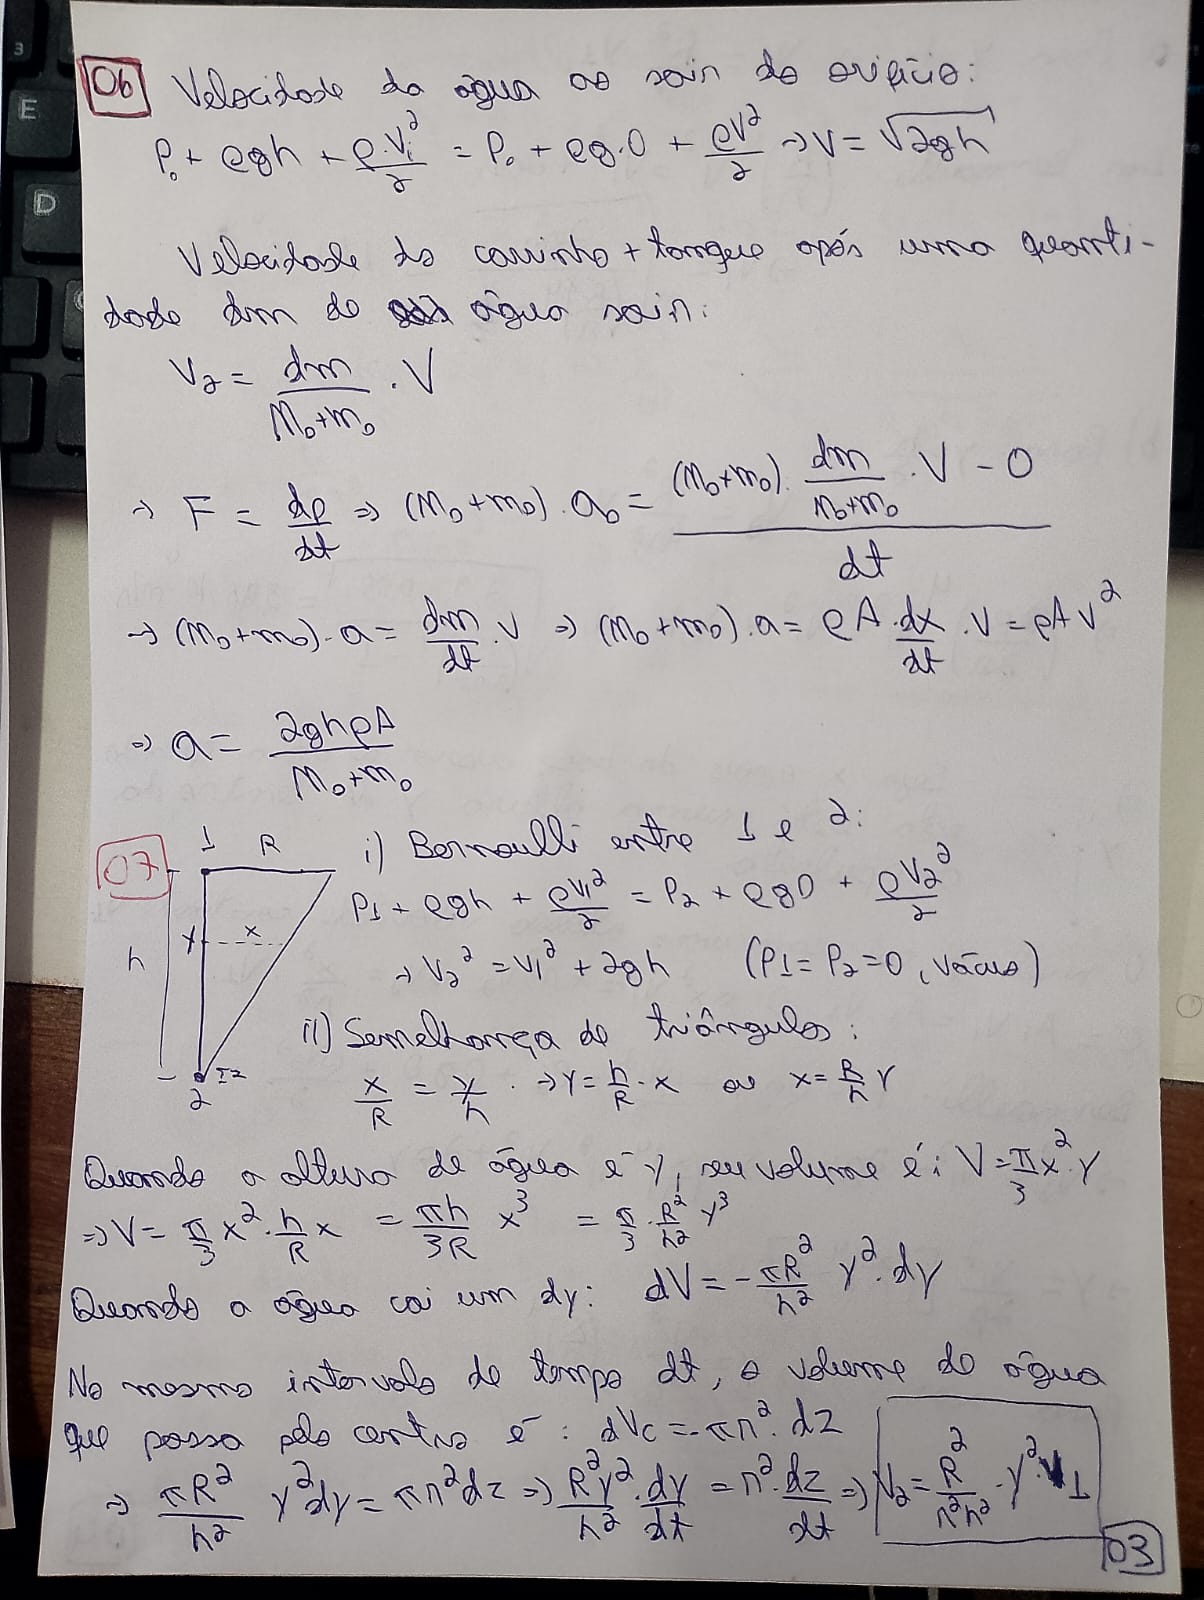 06 Velocidade da água ao sair do orifício:
P₀ + ρgh + ρ.Vi²/2 = P₀ + ρg.0 + ρV²/2 → V = √2gh
Velocidade do carrinho + tanque após uma quanti-
dade dm de água sair:
V₂ = dm/(M₀+m₀) . V
→ F = dp/dt ⇒ (M₀+m₀).a₀ = ((M₀+m₀). dm/(M₀+m₀) . V - 0)/dt
→ (M₀+m₀).a = dm/dt . V ⇒ (M₀+m₀).a = ρA.dx/dt . V = ρAV²
⇒ a = 2ghρA/(M₀+m₀)
07 i) Bernoulli entre 1 e 2:
1 R
P1 + ρgh + ρV1²/2 = P2 + ρg0 + ρV2²/2
y x
h
→ V2² = V1² + 2gh (P1 = P2 = 0, vácuo)
ii) Semelhança de triângulos:
2
x/R = y/h . → y = h/R . x ou x = R/h y
Quando a altura de água é y, seu volume é: V = π/3 x².y
⇒ V = π/3 x². h/R x = πh/3R x³ = π/3 . R²/h² y³
Quando a água cai um dy: dV = - πR²/h² y².dy
No mesmo intervalo de tempo dt, o volume de água
que passa pelo centro é: dVc = -πr².dz
⇒ πR²/h² y²dy = πr²dz ⇒ R²y²/h² . dy/dt = r².dz/dt ⇒ V2 = R²/r²h² . y².V1
03